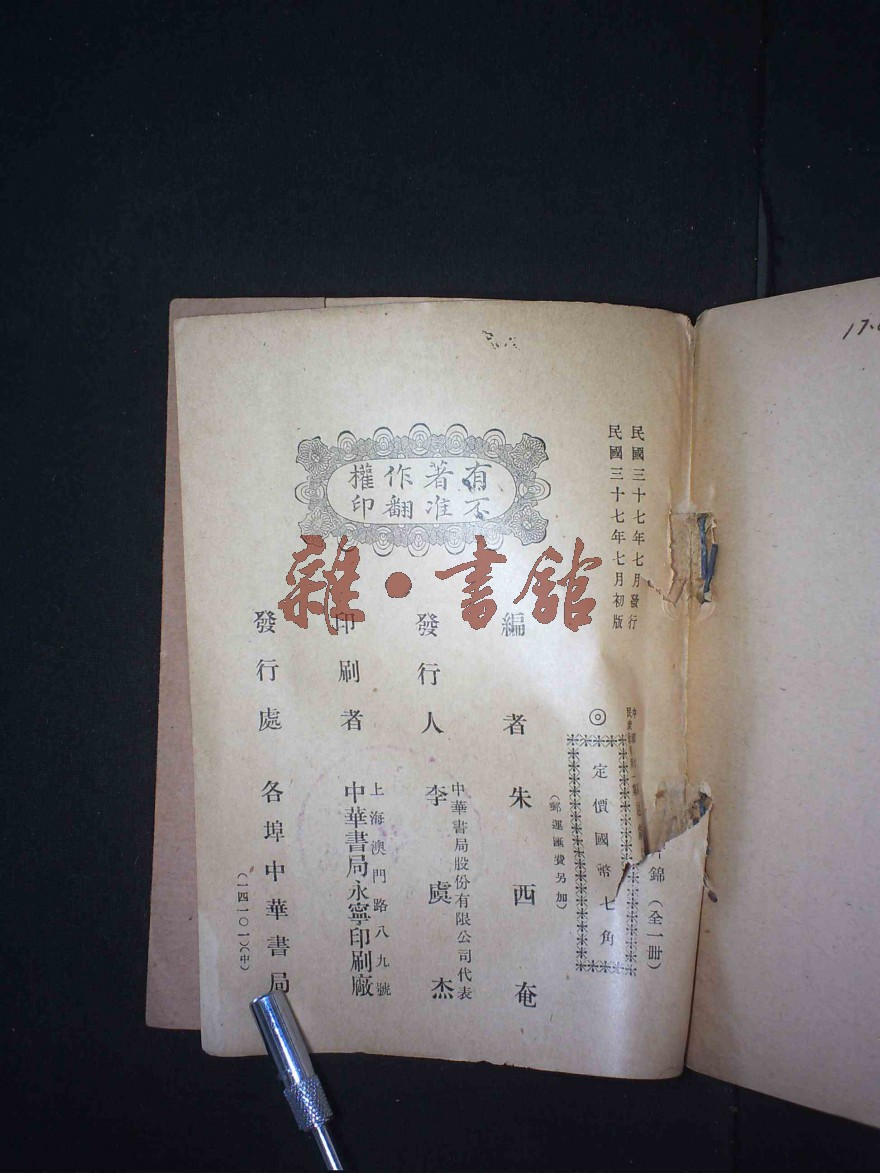 民國三十七年七月發行
民國三十七年七月初版
錦（全一冊）
◎
定價國幣七角
（郵運匯費另加）
有著作權
不准翻印
編者 朱西奄
發行人 李虞杰
中華書局股份有限公司代表
印刷者
上海澳門路八九號
中華書局永寧印刷廠
發行處 各埠中華書局
（一四一〇一）（中）
雜·書館
17.